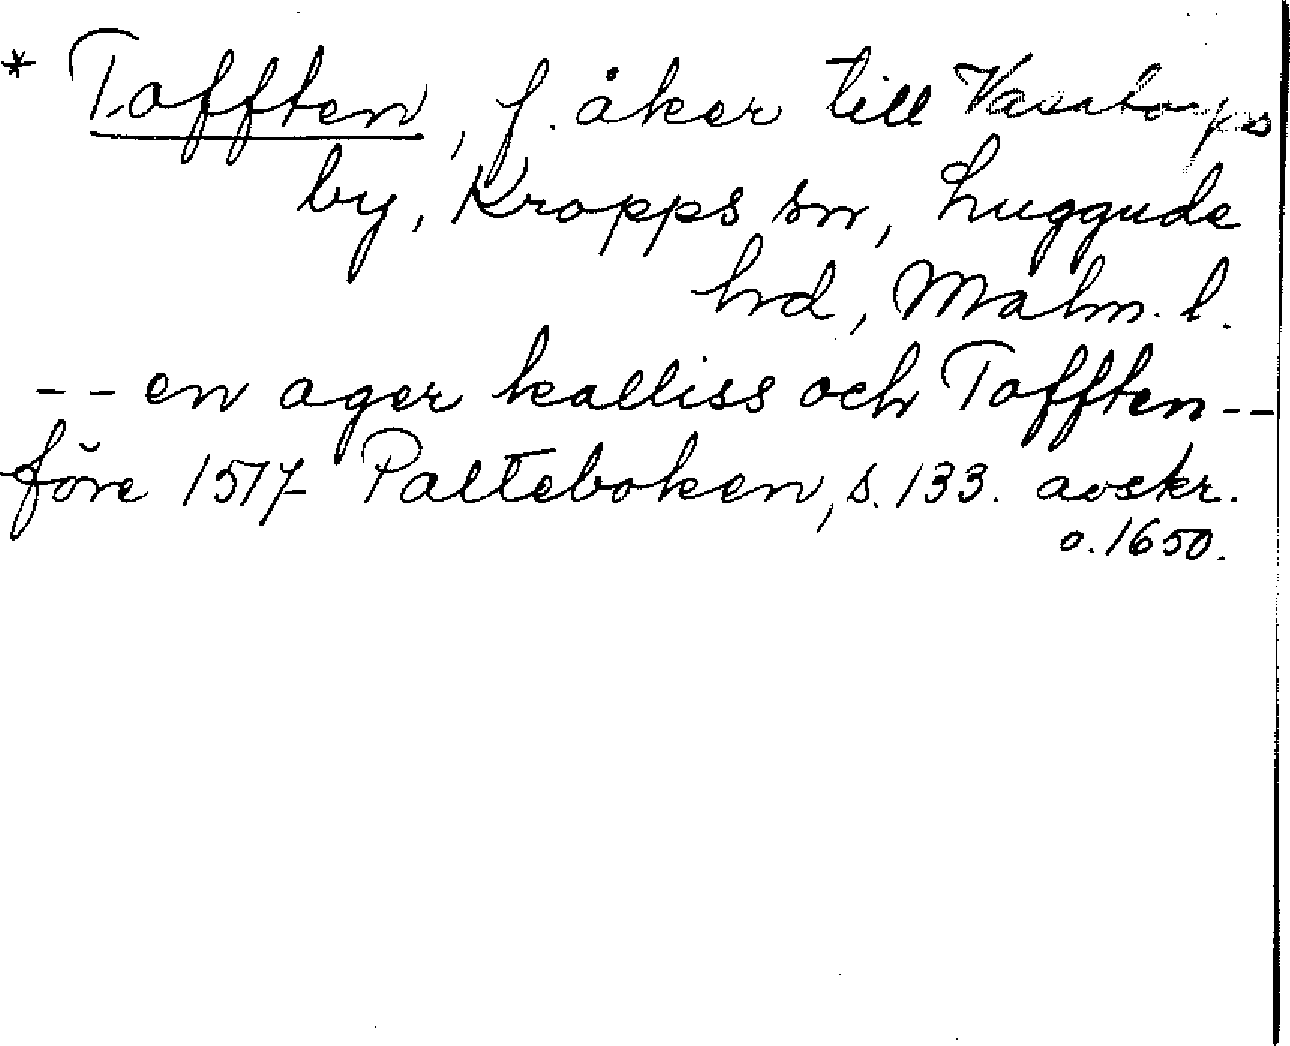 * Tofften, f. åker till Vasatorps
by, Kropps sn, Luggude
hd, Malm. l.
-- en ager kalliss och Tofften --
före 1517 Palteboken, s. 133. avskr.
o. 1650.